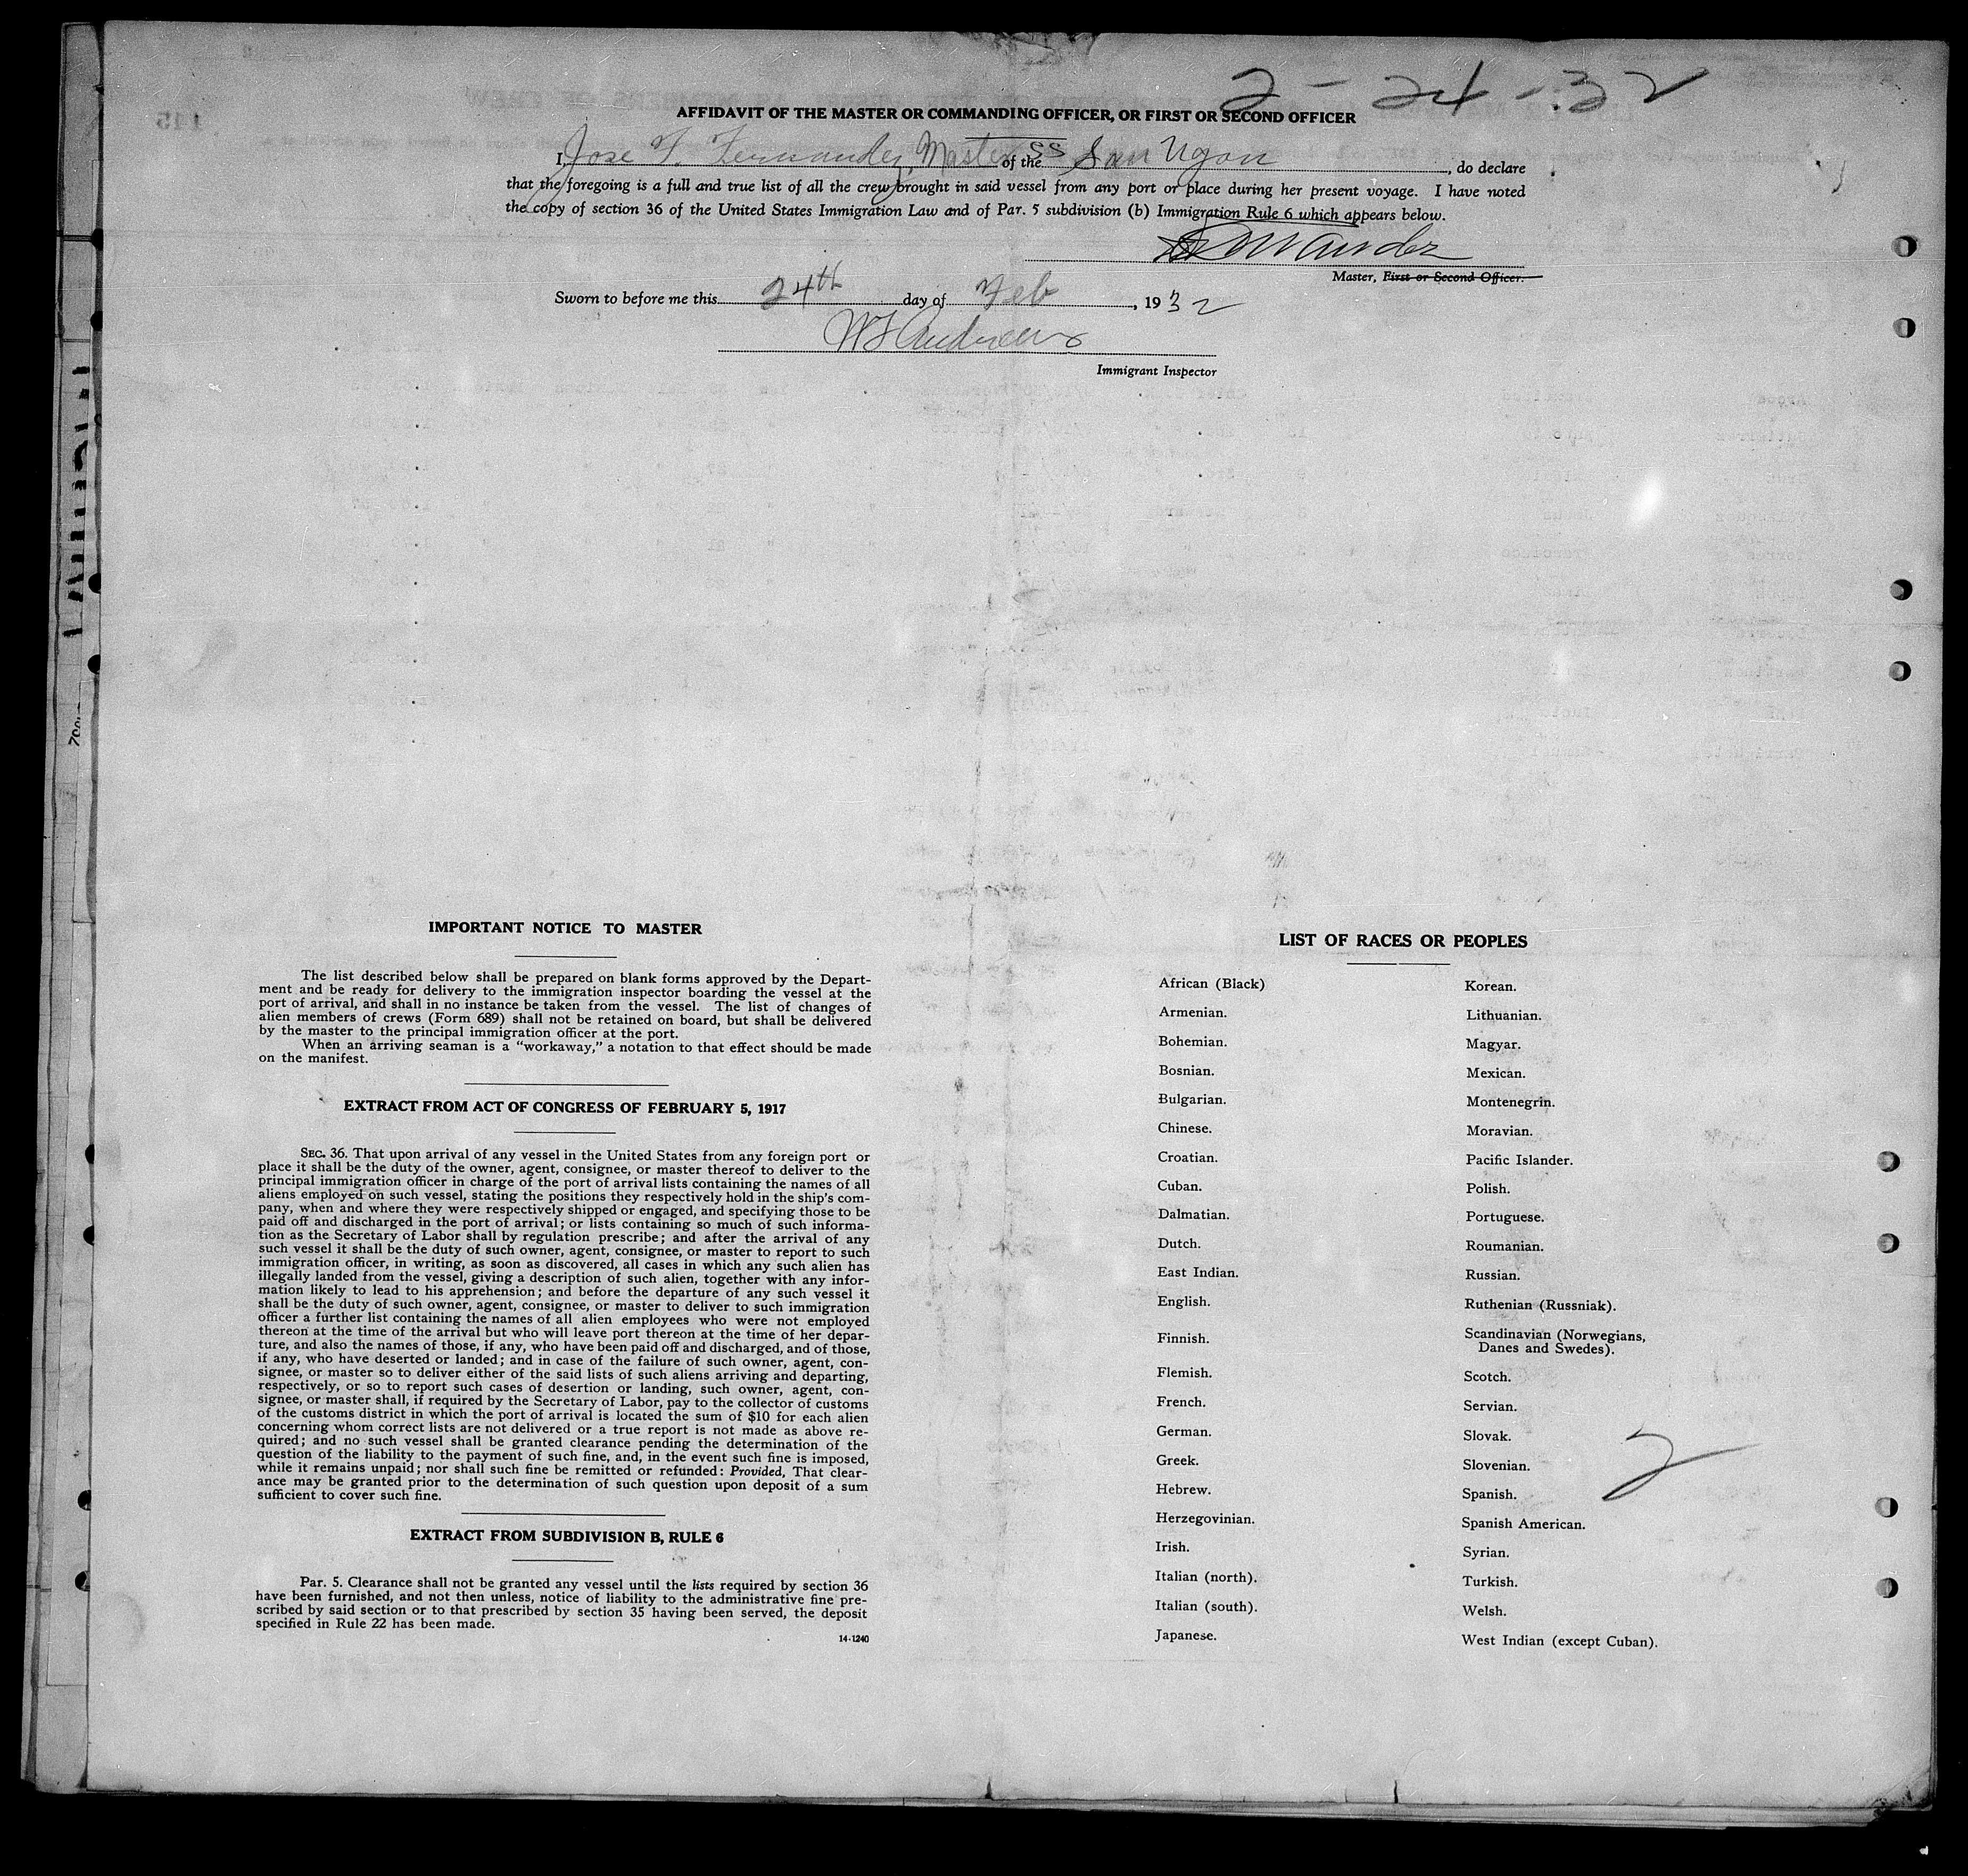 2-24-32
AFFIDAVIT OF THE MASTER OR COMMANDING OFFICER, OR FIRST OR SECOND OFFICER
I, Jose F. Fernandez, Master of the SS San Ugon, do declare
that the foregoing is a full and true list of all the crew brought in said vessel from any port or place during her present voyage. I have noted
the copy of section 36 of the United States Immigration Law and of Par. 5 subdivision (b) Immigration Rule 6 which appears below.
Master, First or Second Officer.
Sworn to before me this 24th day of Feb, 1932
W F Andrews
Immigrant Inspector
IMPORTANT NOTICE TO MASTER
The list described below shall be prepared on blank forms approved by the Depart-
ment and be ready for delivery to the immigration inspector boarding the vessel at the
port of arrival, and shall in no instance be taken from the vessel. The list of changes of
alien members of crews (Form 689) shall not be retained on board, but shall be delivered
by the master to the principal immigration officer at the port.
When an arriving seaman is a "workaway," a notation to that effect should be made
on the manifest.
EXTRACT FROM ACT OF CONGRESS OF FEBRUARY 5, 1917
SEC. 36. That upon arrival of any vessel in the United States from any foreign port or
place it shall be the duty of the owner, agent, consignee, or master thereof to deliver to the
principal immigration officer in charge of the port of arrival lists containing the names of all
aliens employed on such vessel, stating the positions they respectively hold in the ship's com-
pany, when and where they were respectively shipped or engaged, and specifying those to be
paid off and discharged in the port of arrival; or lists containing so much of such informa-
tion as the Secretary of Labor shall by regulation prescribe; and after the arrival of any
such vessel it shall be the duty of such owner, agent, consignee, or master to report to such
immigration officer, in writing, as soon as discovered, all cases in which any such alien has
illegally landed from the vessel, giving a description of such alien, together with any infor-
mation likely to lead to his apprehension; and before the departure of any such vessel it
shall be the duty of such owner, agent, consignee, or master to deliver to such immigration
officer a further list containing the names of all alien employees who were not employed
thereon at the time of the arrival but who will leave port thereon at the time of her depar-
ture, and also the names of those, if any, who have been paid off and discharged, and of those,
if any, who have deserted or landed; and in case of the failure of such owner, agent, con-
signee, or master so to deliver either of the said lists of such aliens arriving and departing,
respectively, or so to report such cases of desertion or landing, such owner, agent, con-
signee, or master shall, if required by the Secretary of Labor, pay to the collector of customs
of the customs district in which the port of arrival is located the sum of $10 for each alien
concerning whom correct lists are not delivered or a true report is not made as above re-
quired; and no such vessel shall be granted clearance pending the determination of the
question of the liability to the payment of such fine, and, in the event such fine is imposed,
while it remains unpaid; nor shall such fine be remitted or refunded: Provided, That clear-
ance may be granted prior to the determination of such question upon deposit of a sum
sufficient to cover such fine.
EXTRACT FROM SUBDIVISION B, RULE 6
Par. 5. Clearance shall not be granted any vessel until the lists required by section 36
have been furnished, and not then unless, notice of liability to the administrative fine pre-
scribed by said section or to that prescribed by section 35 having been served, the deposit
specified in Rule 22 has been made.
14-1240
LIST OF RACES OR PEOPLES
African (Black)
Armenian.
Bohemian.
Bosnian.
Bulgarian.
Chinese.
Croatian.
Cuban.
Dalmatian.
Dutch.
East Indian.
English.
Finnish.
Flemish.
French.
German.
Greek.
Hebrew.
Herzegovinian.
Irish.
Italian (north).
Italian (south).
Japanese.
Korean.
Lithuanian.
Magyar.
Mexican.
Montenegrin.
Moravian.
Pacific Islander.
Polish.
Portuguese.
Roumanian.
Russian.
Ruthenian (Russniak).
Scandinavian (Norwegians,
Danes and Swedes).
Scotch.
Servian.
Slovak.
Slovenian.
Spanish.
Spanish American.
Syrian.
Turkish.
Welsh.
West Indian (except Cuban).
2